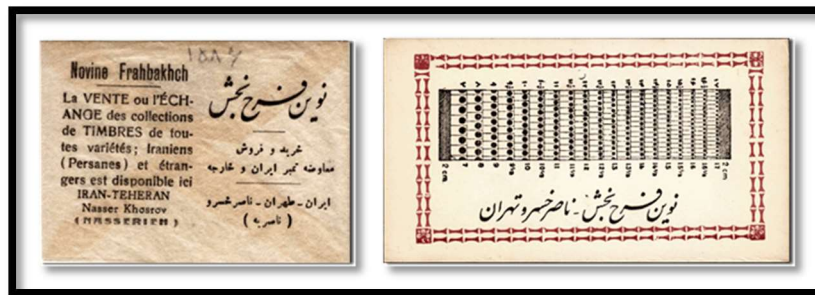 Novine Frahbakhch
La VENTE ou l'ÉCH-
ANGE des collections
de TIMBRES de tou-
tes variétés; Iraniens
(Persanes) et étran-
gers est disponible ici
IRAN-TEHERAN
Nasser Khosrov
(NASSERIEH)
نوین فرح بخش
خرید و فروش
معاوضه تمبر ایران و خارجه
ایران - طهران - ناصر خسرو
( ناصریه )
2 cm 7 8 9 10 11 12 13 14 15 16 17 2 cm
نوین فرح بخش - ناصر خسرو تهران